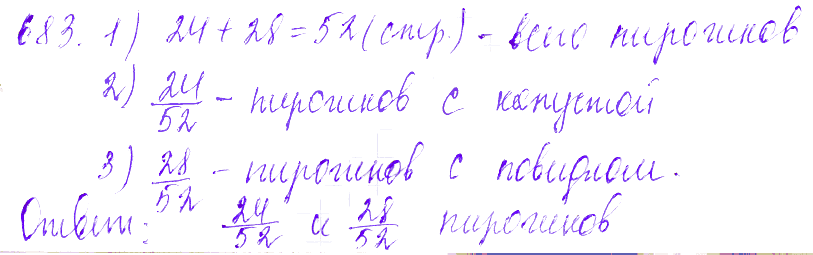 683. 1) 24 + 28 = 52 (стр.) - всего пирогиков
2) 24/52 - пирогиков с капустой
3) 28/52 - пирогиков с повидлом.
Ответ: 24/52 и 28/52 пирогиков